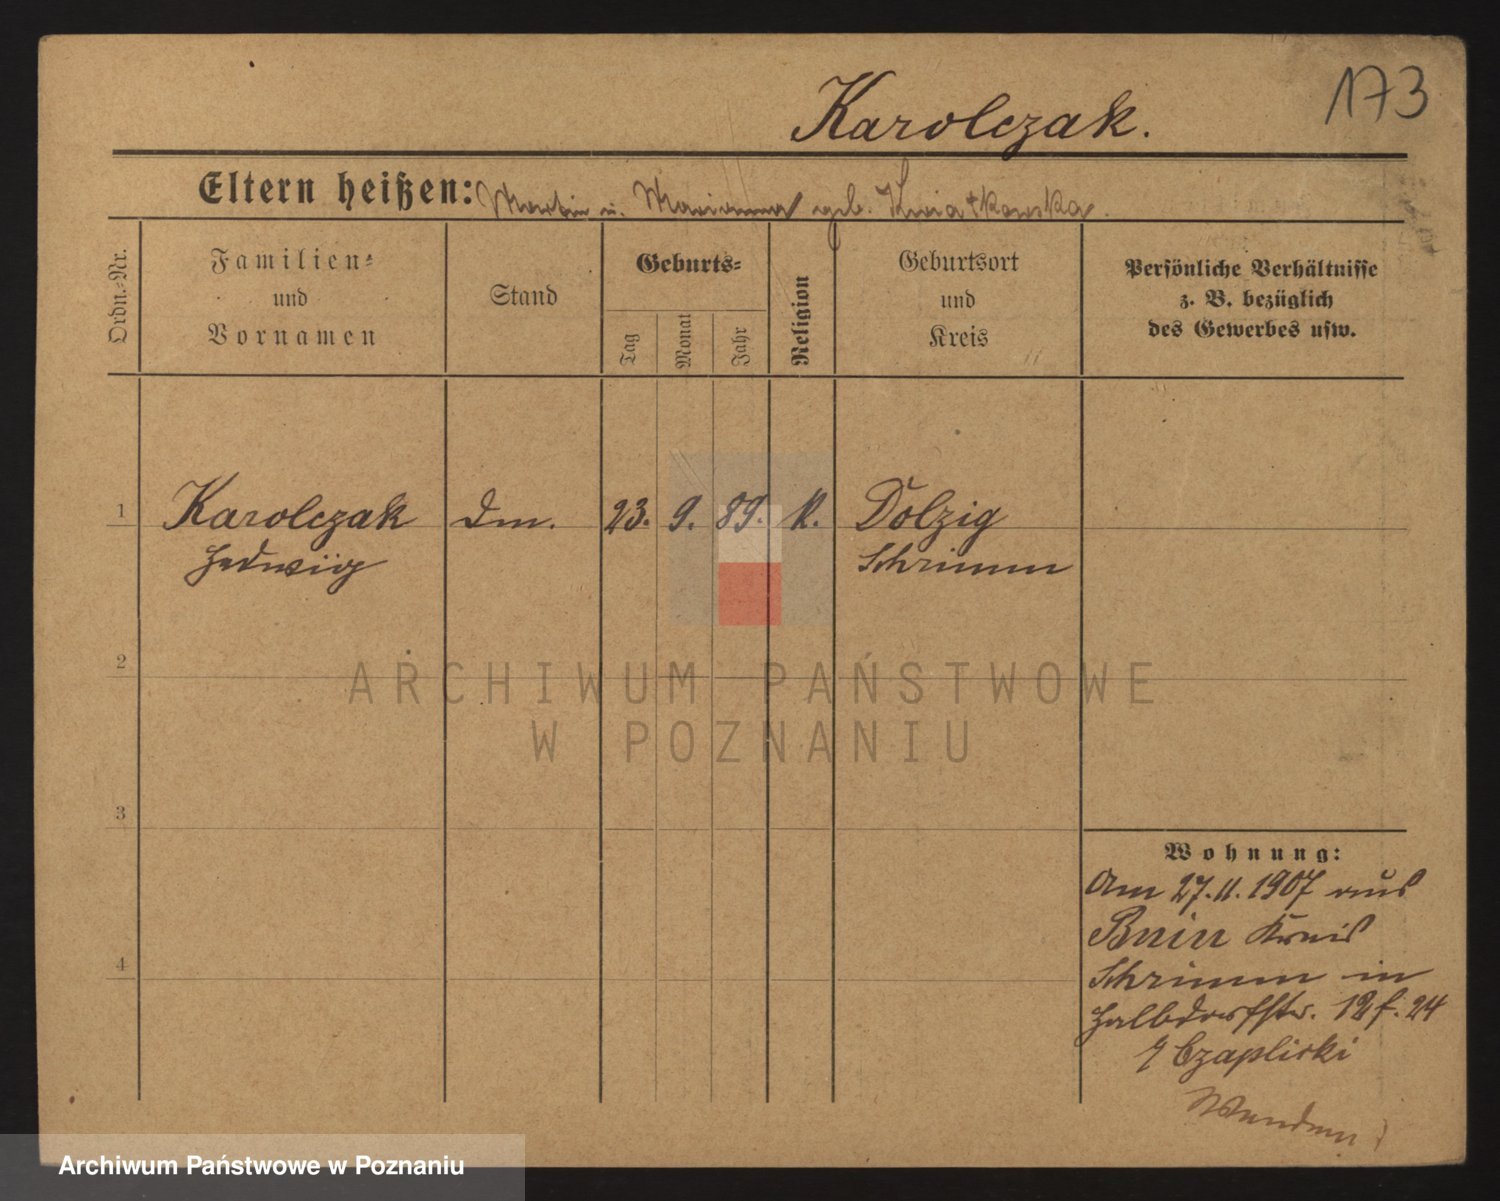 173
Karolczak.
Eltern heißen: Martin u. Marianna geb. Kwiatkowska.
Ordn.-Nr.
Familien-
und
Vornamen
Stand
Geburts-
Tag
Monat
Jahr
Religion
Geburtsort
und
Kreis
Persönliche Verhältnisse
z. B. bezüglich
des Gewerbes usw.
1 Karolczak Dm. 23. 9. 89. K. Dolzig
Hedwig Schrimm
2
ARCHIWUM PAŃSTWOWE
W POZNANIU
3
Wohnung:
Am 27.11.1907 aus
Bnin Kreis
4
Schrimm in
Halbdorfstr. 12 f. 24
Czapliski
Wenden!
Archiwum Państwowe w Poznaniu